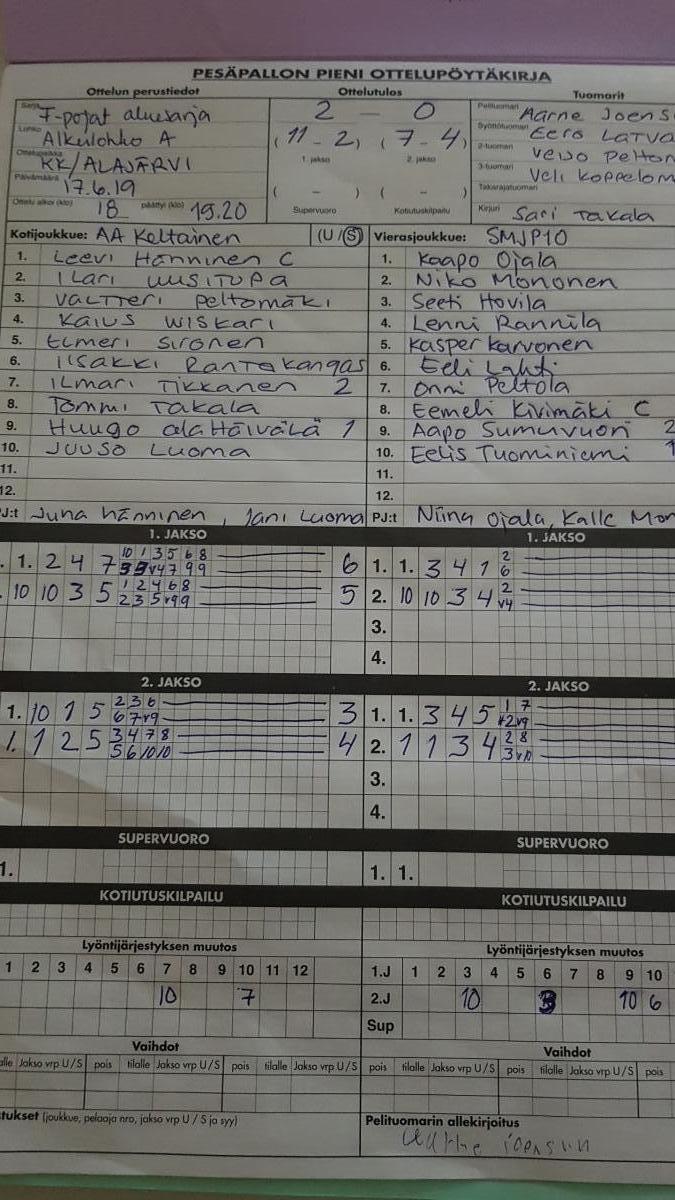 PESÄPALLON PIENI OTTELUPÖYTÄKIRJA
Ottelun perustiedot
Ottelutulos
Tuomarit
Sarja F-pojat aluesarja
Lohko Alkulohko A
Ottelupaikka KK/ALAJÄRVI
Päivämäärä 17.6.19
Ottelu alkoi (klo) 18 päättyi (klo) 19.20
2 — 0
(11 - 2) (7 - 4)
1. jakso 2. jakso
( - ) ( - )
Supervuoro Kotiutuskilpailu
Pelituomari Aarne Joens
Syöttötuomari Eero Latva
2-tuomari Veijo Pelton
3-tuomari Veli Koppelom
Takarajatuomari
Kirjuri Sari Takala
Kotijoukkue: AA Keltainen (U/S)
1. Leevi Hänninen C
2. Ilari Uusitupa
3. Valtteri Peltomäki
4. Kaius Wiskari
5. Elmeri Sironen
6. Iisakki Rantakangas
7. Ilmari Tikkanen 2
8. Tommi Takala
9. Huugo Ala-Häivälä 1
10. Juuso Luoma
11.
12.
PJ:t Juha Hänninen, Jani Luoma
Vierasjoukkue: SMJP10
1. Kaapo Ojala
2. Niko Mononen
3. Seeti Hovila
4. Lenni Rannila
5. Kasper Karvonen
6. Eeli Lahti
7. Onni Peltola
8. Eemeli Kivimäki C
9. Aapo Sumuvuori 2
10. Eelis Tuominiemi 1
11.
12.
PJ:t Niina Ojala, Kalle Mon
1. JAKSO
1. 2 4 7 10 1 3 5 6 8 6
10 10 3 5 1 2 4 6 8 5
2 3 5 v9 9
1. JAKSO
1. 1. 3 4 1 2 6
2. 10 10 3 4 2 v4
3.
4.
2. JAKSO
1. 10 1 5 2 3 6 3
6 7 v9
1. 1 2 5 3 4 7 8 4
5 6 10 10
2. JAKSO
1. 1. 3 4 5 1 7
2. 1 1 3 4 2 8
3 v10
3.
4.
SUPERVUORO
1.
SUPERVUORO
1. 1.
KOTIUTUSKILPAILU
KOTIUTUSKILPAILU
Lyöntijärjestyksen muutos
1 2 3 4 5 6 7 8 9 10 11 12
10 7
Lyöntijärjestyksen muutos
1.J 1 2 3 4 5 6 7 8 9 10
2.J 10 3 10 6
Sup
Vaihdot
alle Jakso vrp U/S pois tilalle Jakso vrp U/S pois tilalle Jakso vrp U/S
Vaihdot
pois tilalle Jakso vrp U/S pois tilalle Jakso vrp U/S pois
tukset (joukkue, pelaaja nro, jakso vrp U / S ja syy)
Pelituomarin allekirjoitus